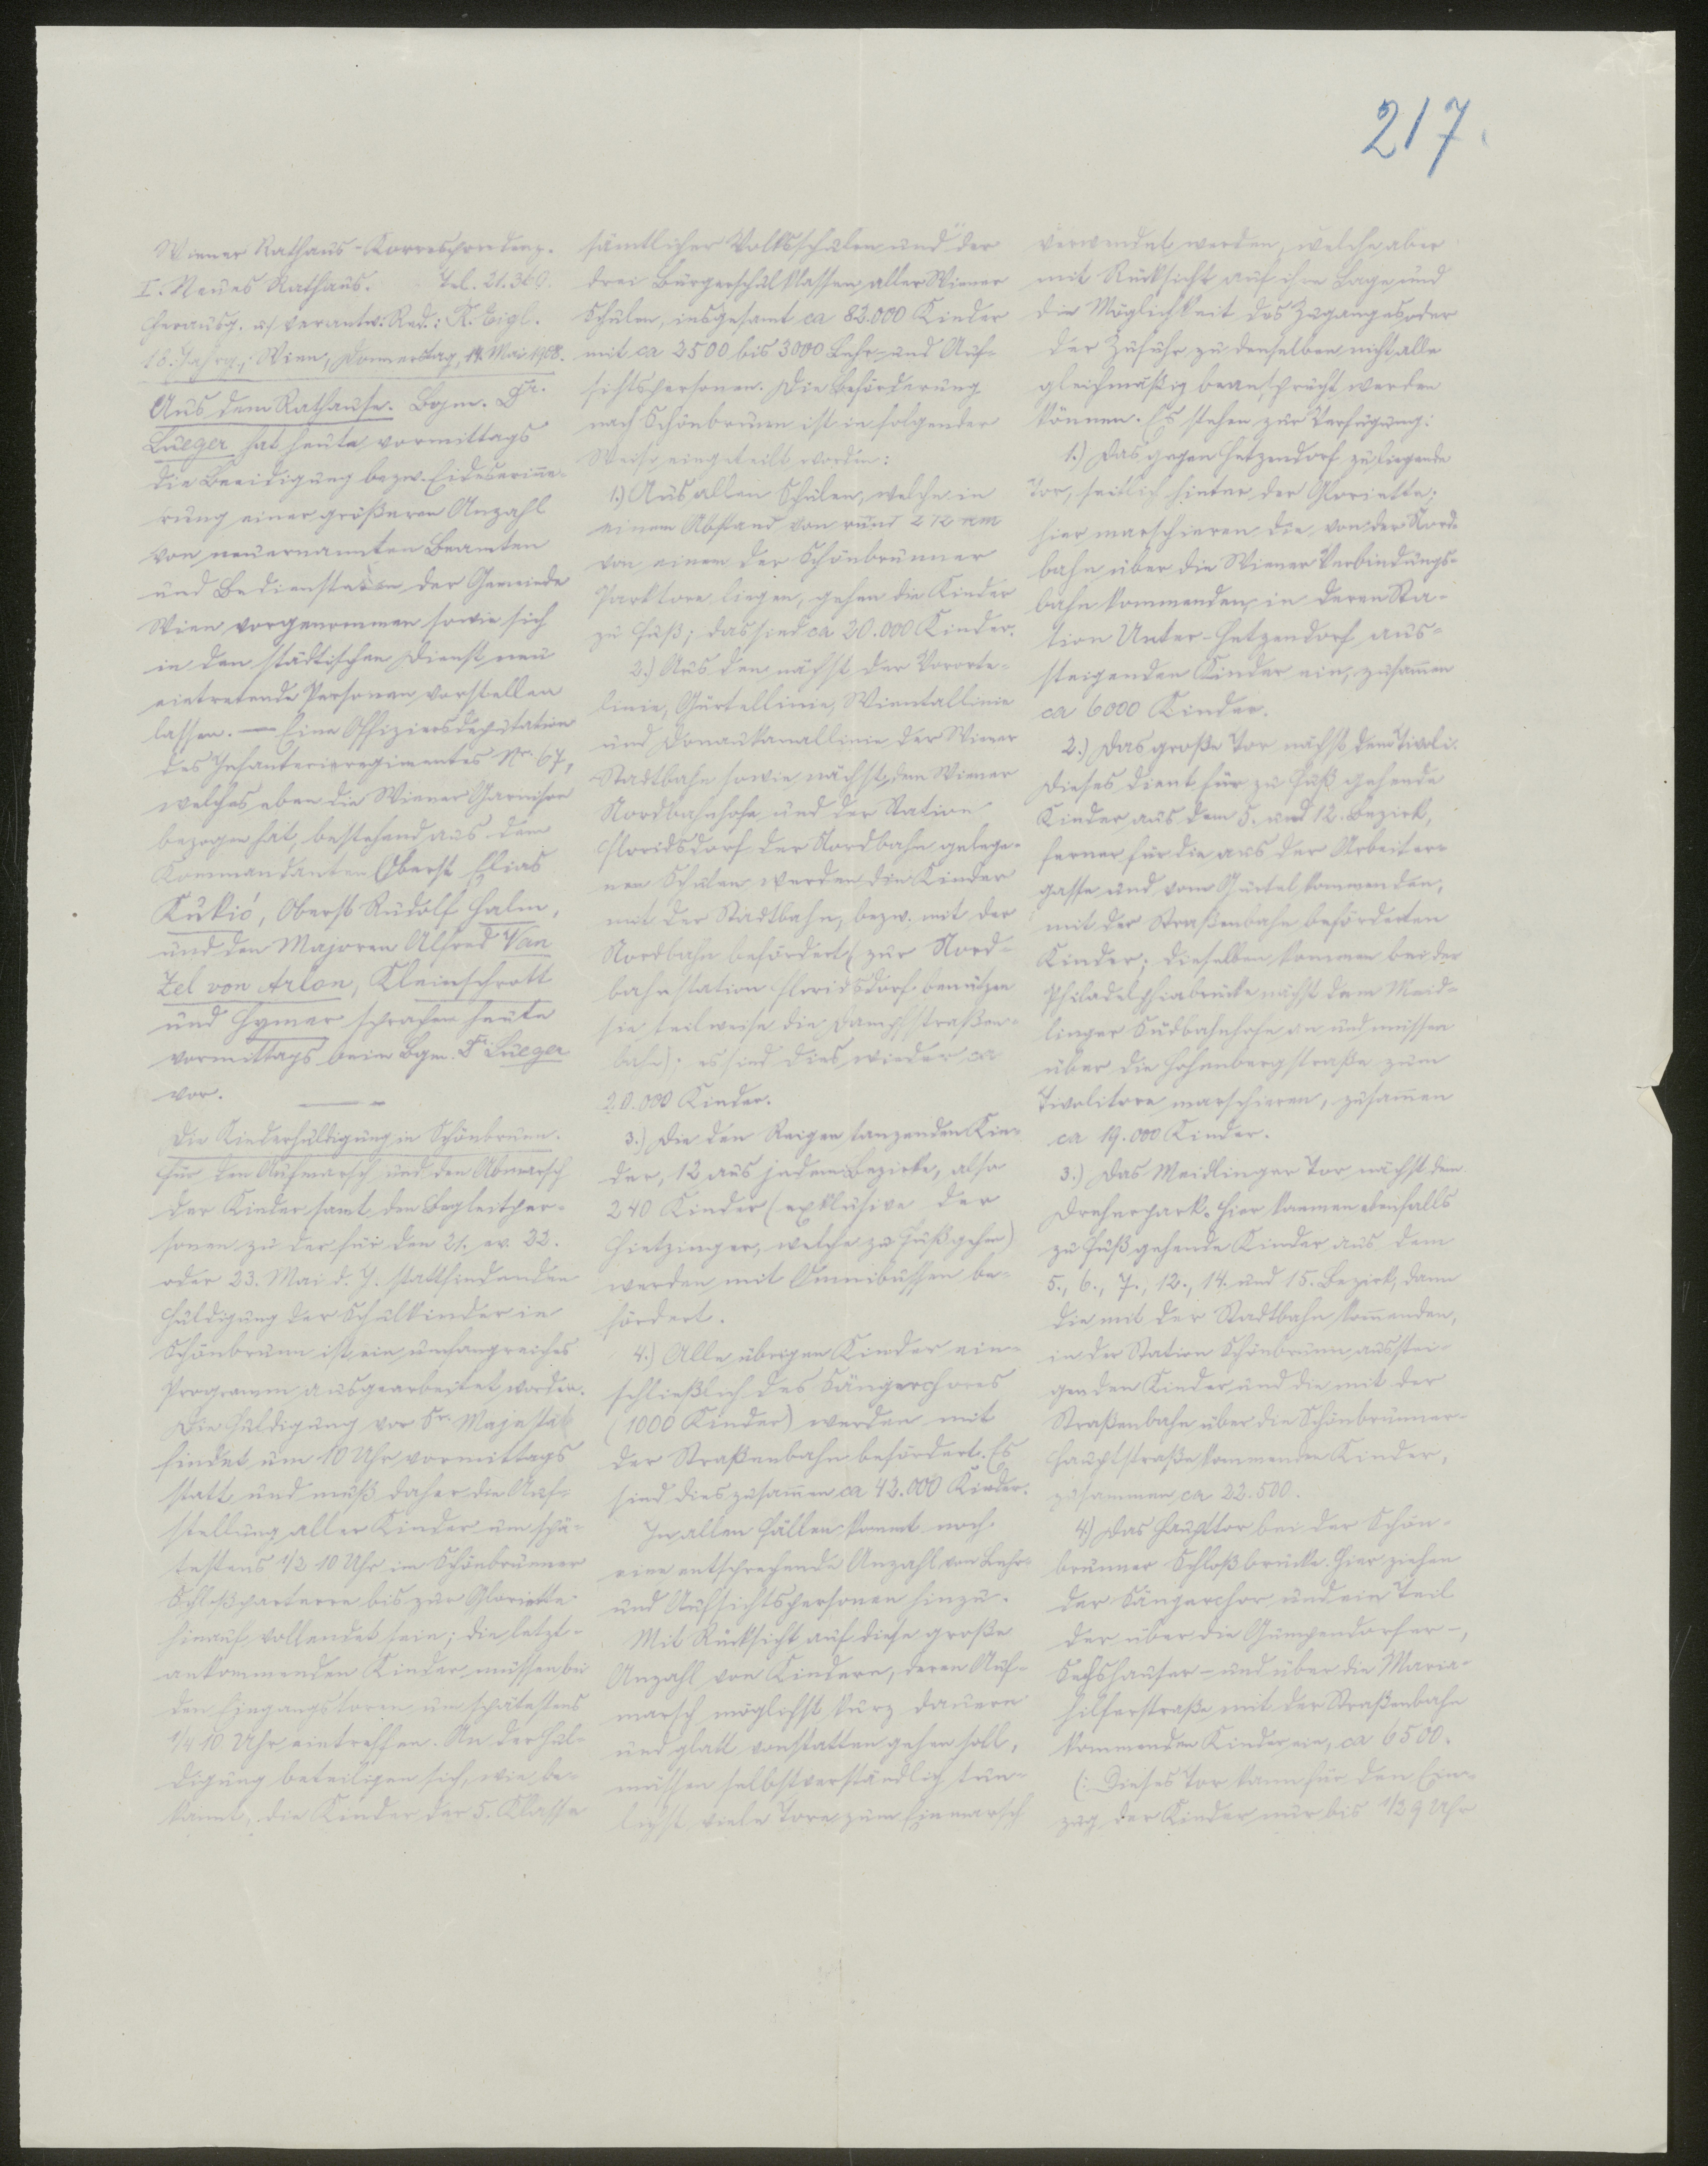 217.
Wiener Rathaus-Korrespondenz.
I. Neues Rathaus. Tel. 21.360.
Herausg. u. verantw. Red.: R. Eigl.
18. Jahrg.; Wien, Donnerstag, 14. Mai 1908.
Aus dem Rathause. Bgm. Dr.
Lueger hat heute vormittags
die Beeidigung bezw. Eideserinne-
rung einer größeren Anzahl
von neuernannten Beamten
und Bediensteten der Gemeinde
Wien vorgenommen sowie sich
in den städtischen Dienst neu
eintretende Personen vorstellen
lassen. — Eine Offiziersdeputation
des Infanterieregimentes Nr. 67,
welches eben die Wiener Garnison
bezogen hat, bestehend aus dem
Kommandanten Oberst Elias
Kukić, Oberst Rudolf Halm,
und den Majoren Alfred Van
Zel von Arlon, Kleinschrott
und Hymer sprachen heute
vormittags beim Bgm. Dr. Lueger
vor.
Die Kinderhuldigung in Schönbrunn.
Für den Aufmarsch und den Abmarsch
der Kinder samt den Begleitper-
sonen zu der für den 21. ev. 22.
oder 23. Mai d. J. stattfindenden
Huldigung der Schulkinder in
Schönbrunn ist ein umfangreiches
Programm ausgearbeitet worden.
Die Huldigung vor Sr. Majestät
findet um 10 Uhr vormittags
statt und muß daher die Auf-
stellung aller Kinder um spä-
testens 1/2 10 Uhr im Schönbrunner
Schloßparterre bis zur Gloriette
hinauf vollendet sein; die letzt-
ankommenden Kinder müssen bei
den Eingangstoren um spätestens
1/4 10 Uhr eintreffen. An der Hul-
digung beteiligen sich, wie be-
kannt, die Kinder der 5. Klasse
sämtlicher Volksschulen und der
drei Bürgerschulklassen aller Wiener
Schulen, insgesamt ca 82.000 Kinder
mit ca 2500 bis 3000 Lehr- und Auf-
sichtspersonen. Die Beförderung
nach Schönbrunn ist in folgender
Weise eingeteilt worden:
1.) Aus allen Schulen, welche in
einem Abstand von rund 2 1/2 km
von einem der Schönbrunner
Parktore liegen, gehen die Kinder
zu Fuß; das sind ca 20.000 Kinder.
2.) Aus den nächst der Vororte-
linie, Gürtellinie, Wientallinie
und Donaukanallinie der Wiener
Stadtbahn sowie nächst dem Wiener
Nordbahnhofe und der Station
Floridsdorf der Nordbahn gelege-
nen Schulen werden die Kinder
mit der Stadtbahn, bezw. mit der
Nordbahn befördert (zur Nord-
bahnstation Floridsdorf benützen
sie teilweise die Dampfstraßen-
bahn); es sind dies wieder ca
20.000 Kinder.
3.) Die den Reigen tanzenden Kin-
der, 12 aus jedem Bezirke, also
240 Kinder (exklusive der
Hietzinger, welche zu Fuß gehen)
werden mit Omnibussen be-
fördert.
4.) Alle übrigen Kinder ein-
schließlich des Sängerchores
(1000 Kinder) werden mit
der Straßenbahn befördert. Es
sind dies zusammen ca 42.000 Kinder.
In allen Fällen kommt noch
eine entsprechende Anzahl von Lehr-
und Aufsichtspersonen hinzu.
Mit Rücksicht auf diese große
Anzahl von Kindern, deren Auf-
marsch möglichst kurz dauern
und glatt vonstatten gehen soll,
müssen selbstverständlich tun-
lichst viele Tore zum Einmarsch
verwendet werden, welche aber
mit Rücksicht auf ihre Lage und
die Möglichkeit des Zuganges oder
der Zufuhr zu denselben nicht alle
gleichmäßig beansprucht werden
können. Es stehen zur Verfügung:
1.) Das gegen Hetzendorf zu liegende
Tor, seitlich hinter der Gloriette;
hier marschieren die von der Nord-
bahn über die Wiener Verbindungs-
bahn kommenden, in deren Sta-
tion Unter-Hetzendorf aus-
steigenden Kinder ein, zusammen
ca 6000 Kinder.
2.) Das große Tor nächst dem Tivoli.
Dieses dient für zu Fuß gehende
Kinder aus dem 5. und 12. Bezirk,
ferner für die aus der Arbeiter-
gasse und vom Gürtel kommenden,
mit der Straßenbahn beförderten
Kinder; dieselben kommen bei der
Philadelphiabrücke nächst dem Meid-
linger Südbahnhofe an und müssen
über die Hohenbergstraße zum
Tivolitore marschieren, zusammen
ca 19.000 Kinder.
3.) Das Meidlinger Tor nächst dem
Dreherpark. Hier kommen ebenfalls
zu Fuß gehende Kinder aus dem
5., 6., 7., 12., 14. und 15. Bezirk, dann
die mit der Stadtbahn kommenden,
in der Station Schönbrunnausstei-
genden Kinder und die mit der
Straßenbahn über die Schönbrunner-
hauptstraße kommenden Kinder,
zusammen ca 22.500.
4.) Das Haupttor bei der Schön-
brunner Schloßbrücke. Hier ziehen
der Sängerchor und ein Teil
der über die Gumpendorfer-,
Sechshauser- und über die Maria-
hilferstraße mit der Straßenbahn
kommenden Kinder ein, ca 6500.
(: Dieses Tor kann für den Ein-
zug der Kinder nur bis 1/2 9 Uhr